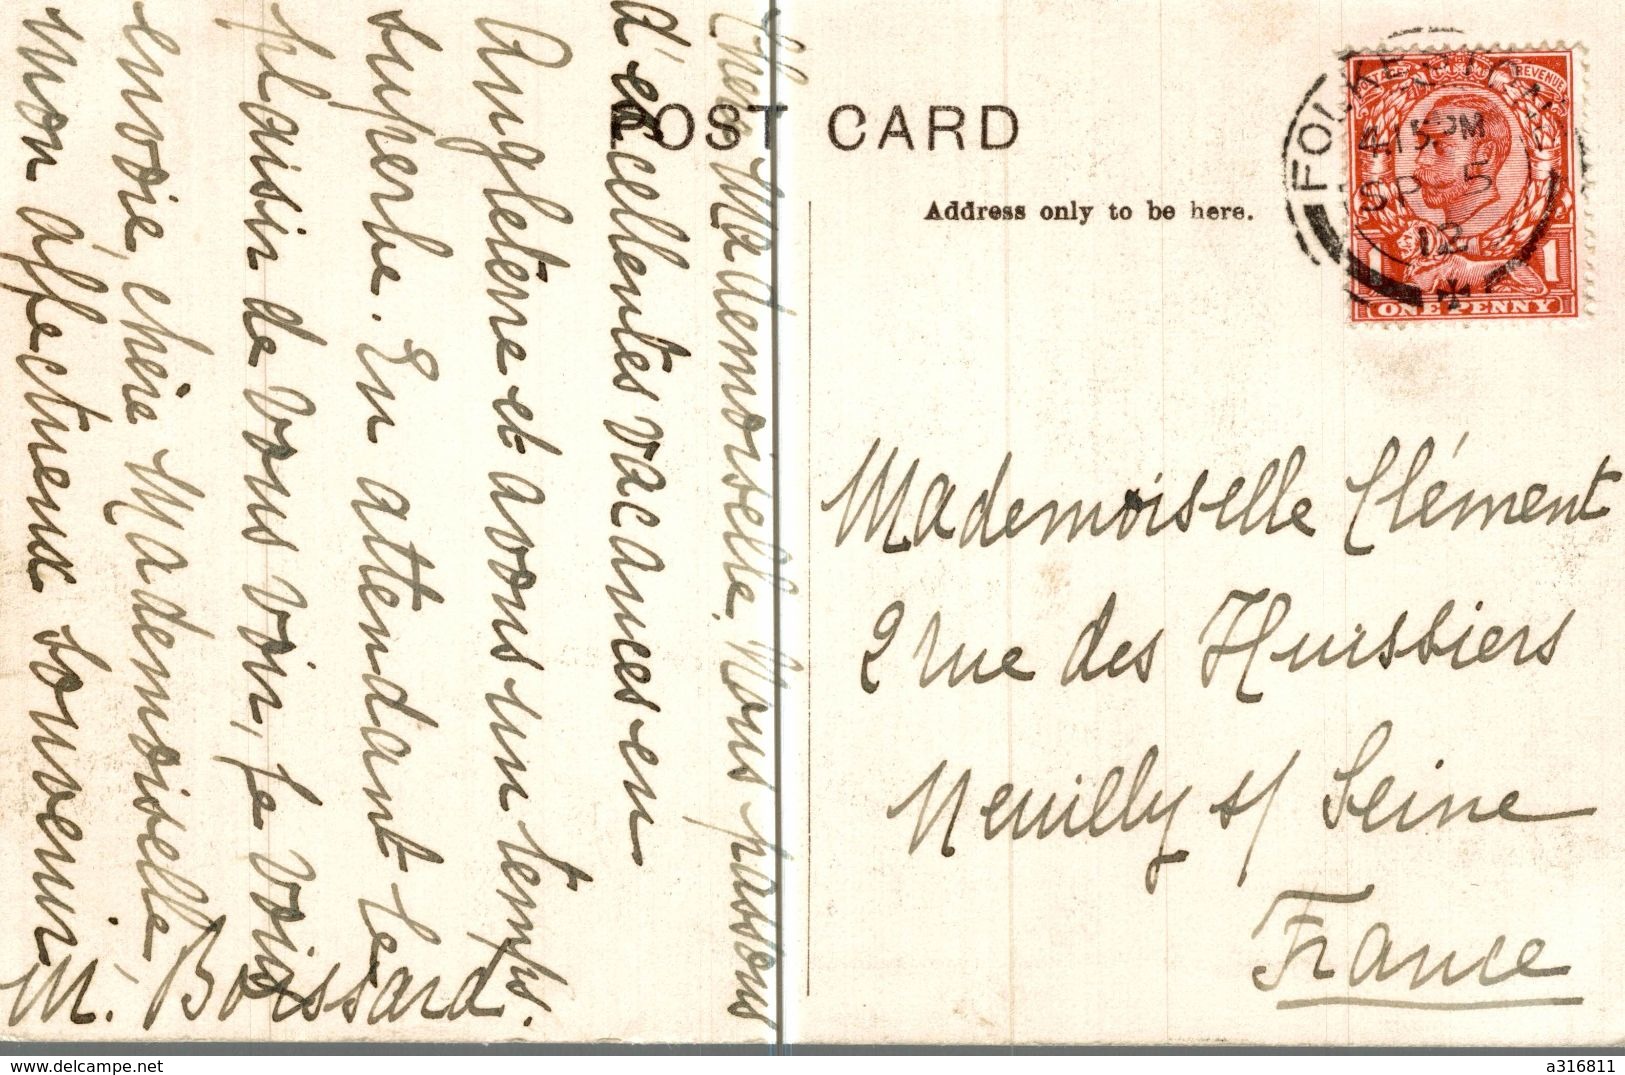 POST CARD
Address only to be here.
FOLKESTONE
4.15 PM
SP 5
12
POSTAGE REVENUE
1 1
ONE PENNY
Chère Mademoiselle, Nous passons
d'excellentes vacances en
Angleterre et avons un temps
superbe. En attendant le
plaisir de vous voir, je vous
envoie, chère Mademoiselle
mon affectueux souvenir
M. Boissard.
Mademoiselle Clément
2 rue des Huissiers
Neuilly s/ Seine
France
delcampe.net
a316811